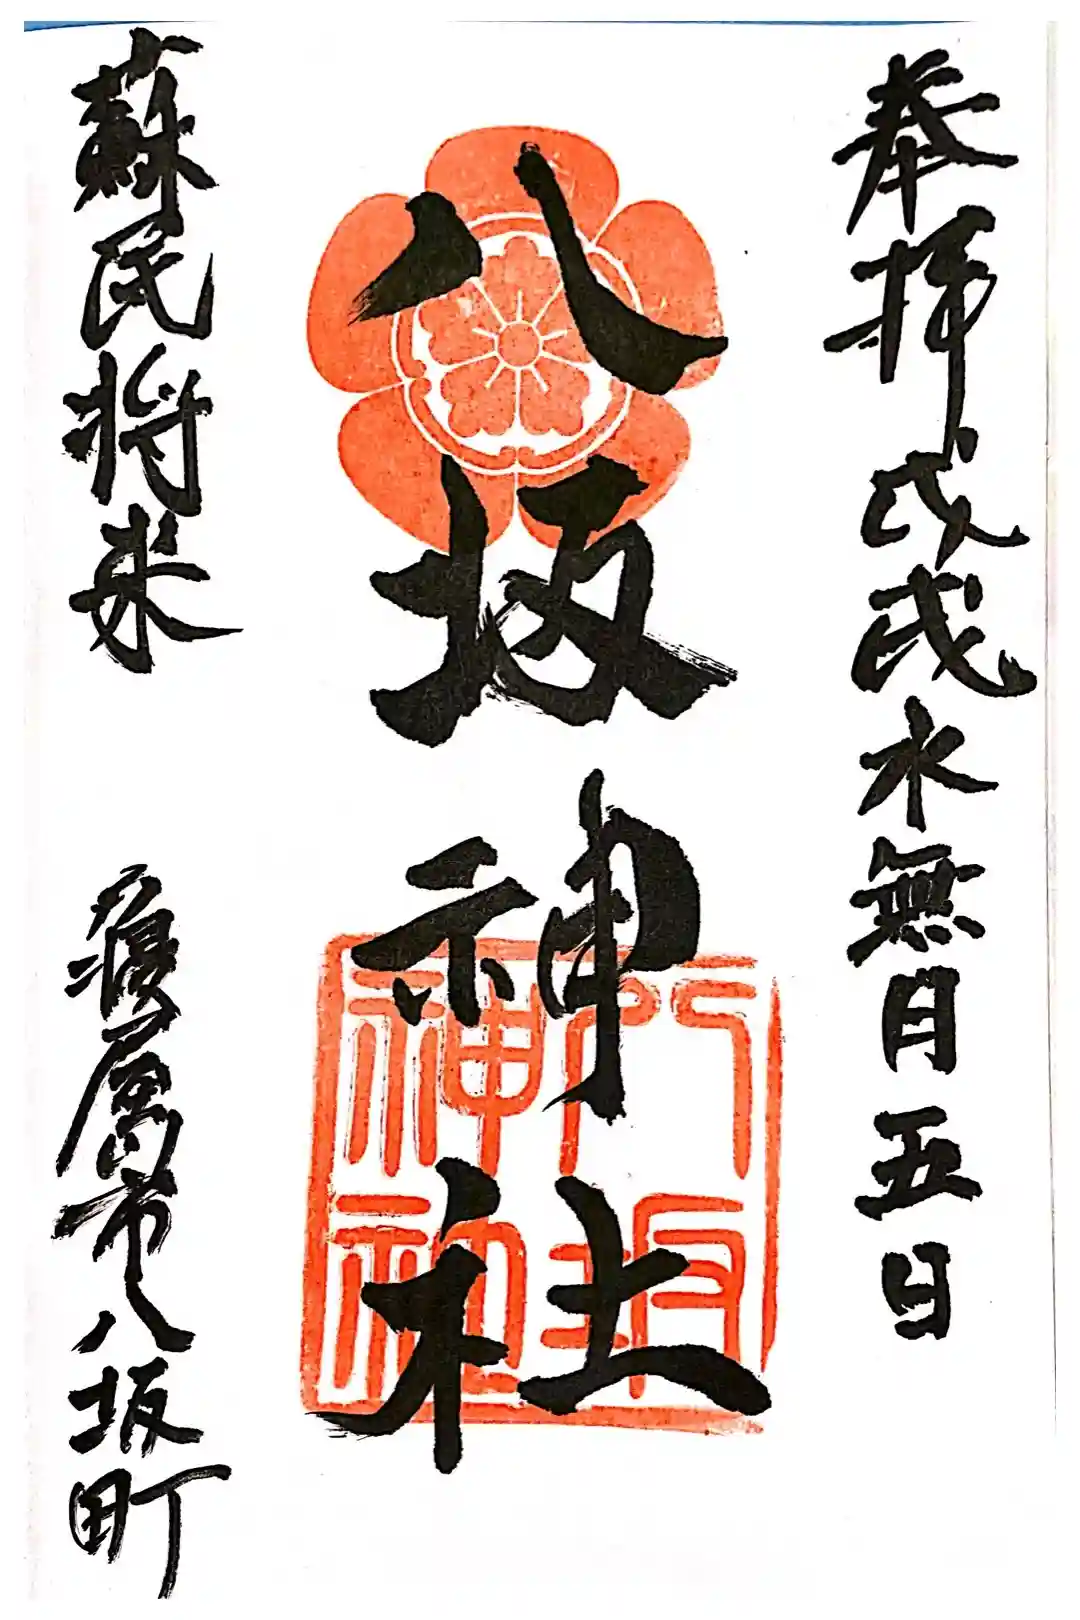 奉拝 戊戌 水無月五日
八坂神社
八坂神社
蘇民将来
寝屋川市八坂町